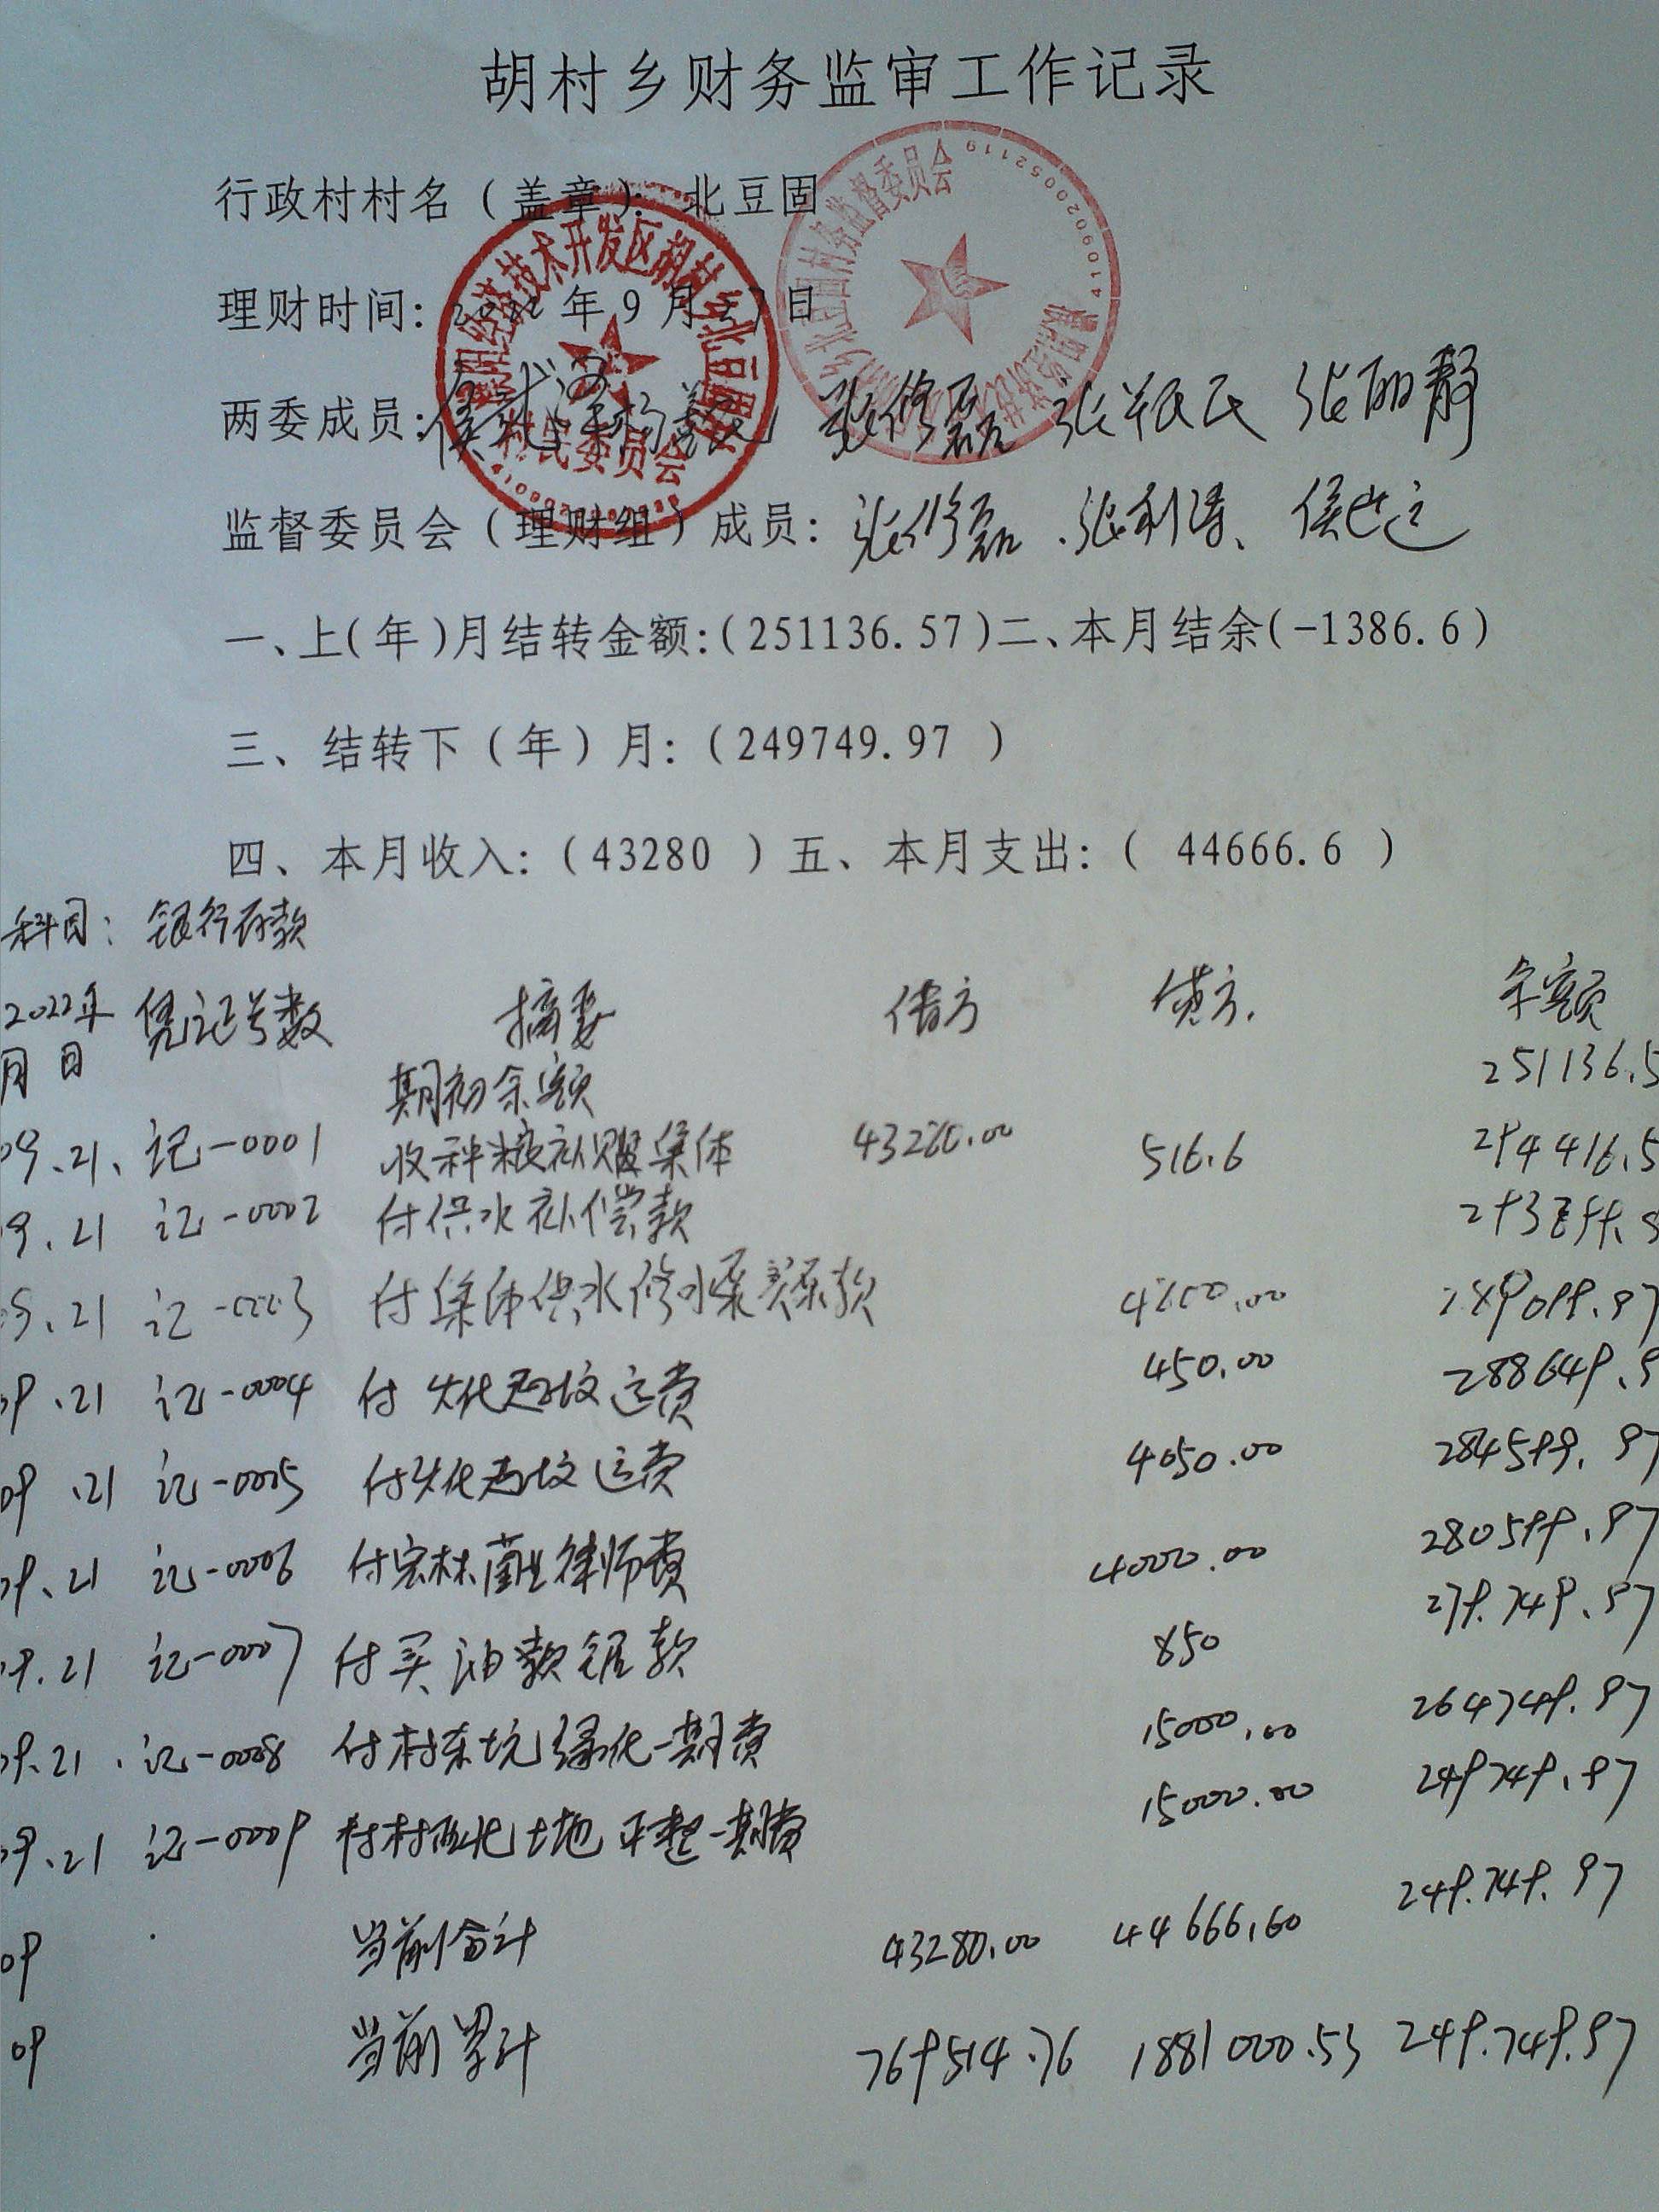 胡村乡财务监审工作记录
行政村村名（盖章）：北豆固
理财时间：2022年9月27日
两委成员： 张修磊 张丽静
监督委员会（理财组）成员：张修磊、张利涛、侯
一、上(年)月结转金额:(251136.57)二、本月结余(-1386.6)
三、结转下（年）月:（249749.97 ）
四、本月收入:（43280 ）五、本月支出:（ 44666.6 ）
科目：银行存款
2022年 凭证号数 摘要 借方 贷方 余额
月 日
期初余额 251136.5
09.21、记-0001 收种粮补贴集体 43280.00 516.6 294416.5
9.21 记-0002 付供水补偿款
09.21 记-0003 付集体供水修水泵买泵款 4800.00 289099.97
09.21 记-0004 付 运费 450.00 288649.9
09.21 记-0005 付 运费 4050.00 284599.97
09.21 记-0006 付宏林菌业律师费 4000.00 280599.97
09.21 记-0007 付买油款锯款 850 279.749.97
09.21 记-0008 付村东坑绿化一期费 15000.00 264749.97
09.21 记-0009 付村西北土地平整一期费 15000.00 249749.97
09 当前合计 43280.00 44666.60 249.749.97
09 当前累计 769514.76 1881000.53 249.749.97
村民委员会
村务监督委员会
4109020052119